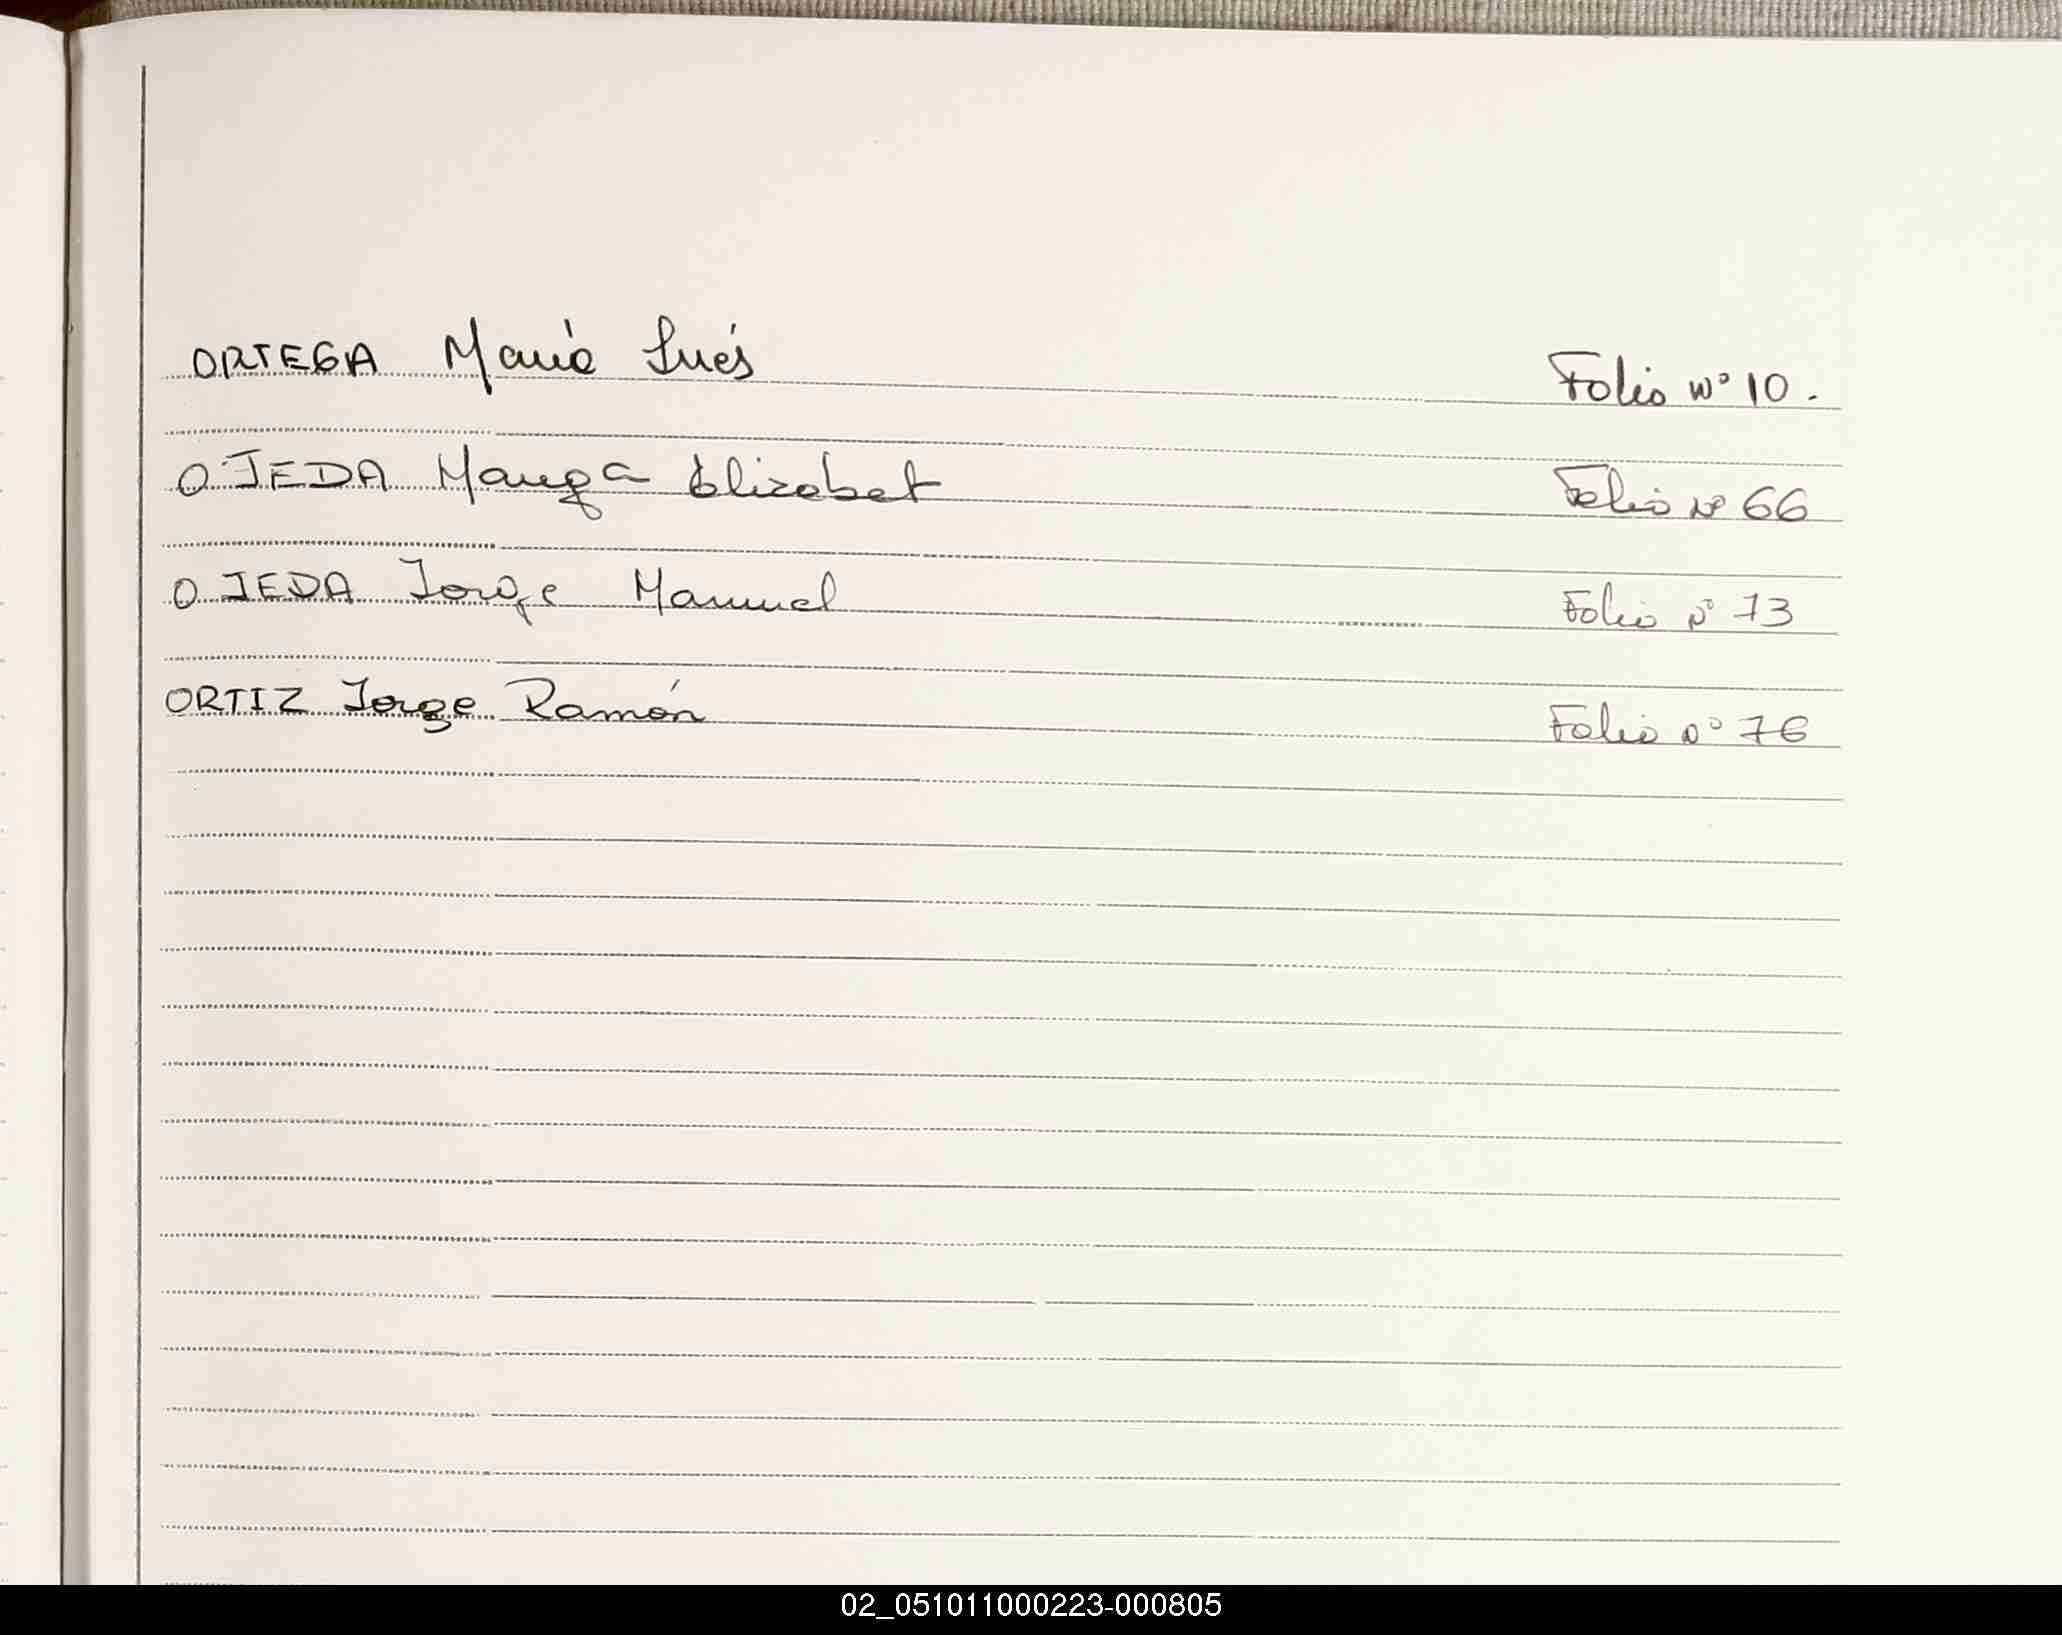 ORTEGA María Inés Folio Nº 10.
OJEDA Elizabet Folio Nº 66
OJEDA Jorge Manuel Folio Nº 73
ORTIZ Jorge Ramón Folio Nº 76
02_051011000223-000805